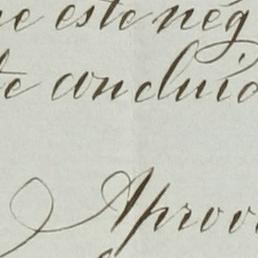 e este neg
te conclui
Aprov